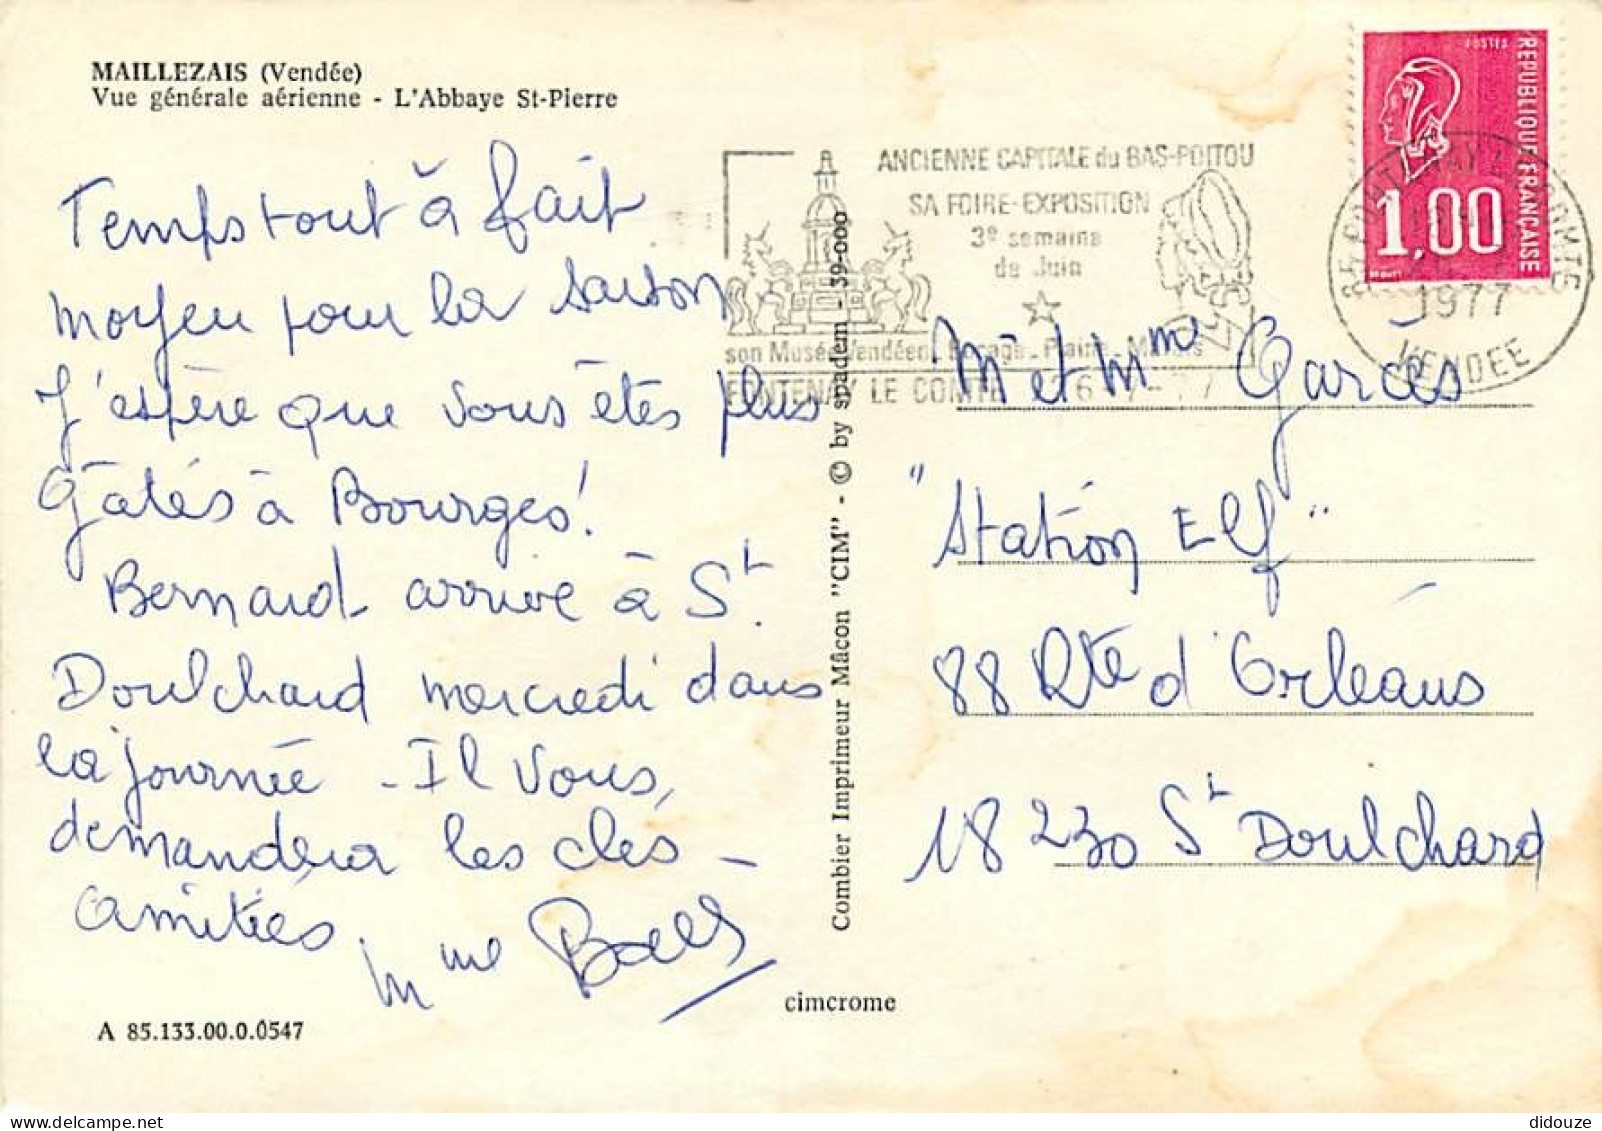 MAILLEZAIS (Vendée)
Vue générale aérienne - L'Abbaye St-Pierre
Temps tout à fait
moyen pour la saison
J'espère que vous êtes plus
Gâtés à Bourges!
Bernard arrive à St
Doulchard mercredi dans
la journée - Il vous
demandera les clés -
Amitiés
Mme
A 85.133.00.0.0547
cimcrome
Combier Imprimeur Mâcon "CIM" - © by spadem 39-000
ANCIENNE CAPITALE du BAS-POITOU
SA FOIRE-EXPOSITION
3e semaine
de Juin
son Musée Vendéen
FONTENAY LE COMTE
POSTES
REPUBLIQUE FRANÇAISE
1,00
1977
VENDEE
Mr et Mme Garcès
"Station Elf"
88 Rte d'Orléans
18230 St Doulchard
didouze | delcampe.net